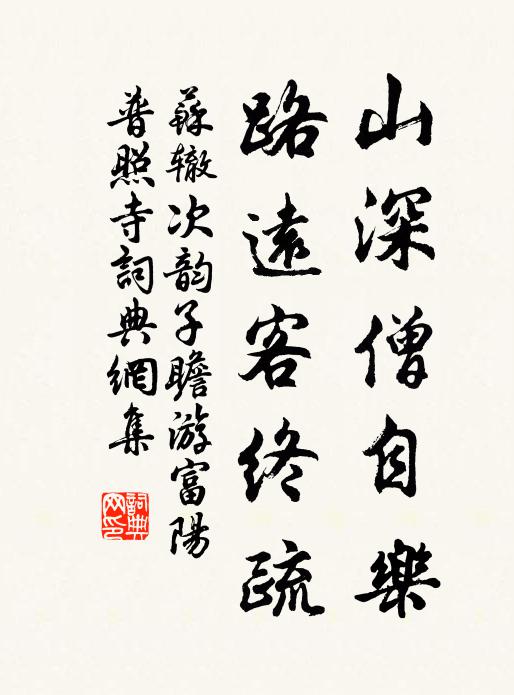 山深僧自樂
路遠客終疏
蘇辙次韵子瞻游富陽
普照寺詞典網集
詞典
网印